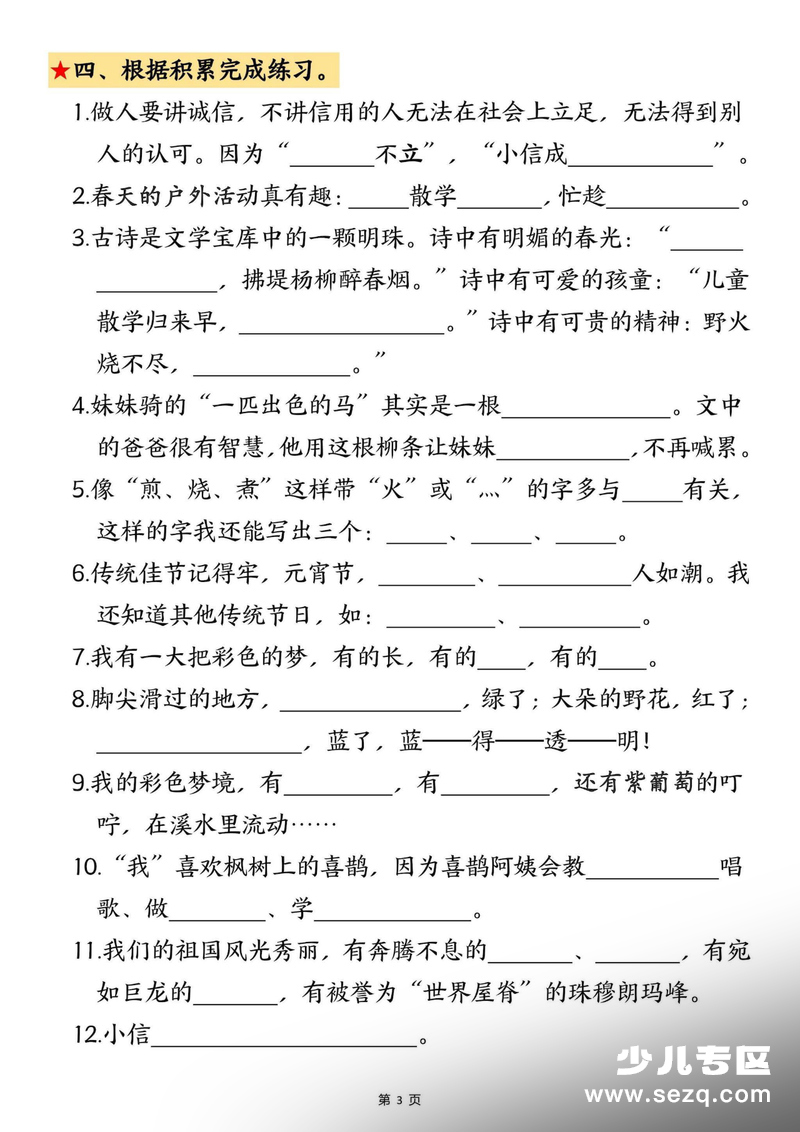 ★四、根据积累完成练习。
1.做人要讲诚信，不讲信用的人无法在社会上立足，无法得到别
人的认可。因为“_______不立”，“小信成____________”。
2.春天的户外活动真有趣：_____散学_______,忙趁___________。
3.古诗是文学宝库中的一颗明珠。诗中有明媚的春光：“______
__________，拂堤杨柳醉春烟。”诗中有可爱的孩童：“儿童
散学归来早，_________________。”诗中有可贵的精神：野火
烧不尽，_____________。”
4.妹妹骑的“一匹出色的马”其实是一根______________。文中
的爸爸很有智慧,他用这根柳条让妹妹___________,不再喊累。
5.像“煎、烧、煮”这样带“火”或“灬”的字多与_____有关，
这样的字我还能写出三个：_____、_____、_____。
6.传统佳节记得牢，元宵节，________、___________人如潮。我
还知道其他传统节日，如：_________、__________。
7.我有一大把彩色的梦，有的长，有的____，有的____。
8.脚尖滑过的地方，_______________，绿了；大朵的野花，红了；
_________________，蓝了，蓝——得——透——明！
9.我的彩色梦境，有_________，有_________，还有紫葡萄的叮
咛，在溪水里流动……
10.“我”喜欢枫树上的喜鹊，因为喜鹊阿姨会教___________唱
歌、做________、学_____________。
11.我们的祖国风光秀丽，有奔腾不息的_______、_______，有宛
如巨龙的_______，有被誉为“世界屋脊”的珠穆朗玛峰。
12.小信______________________。
少儿专区
www.sezq.com
第 3 页